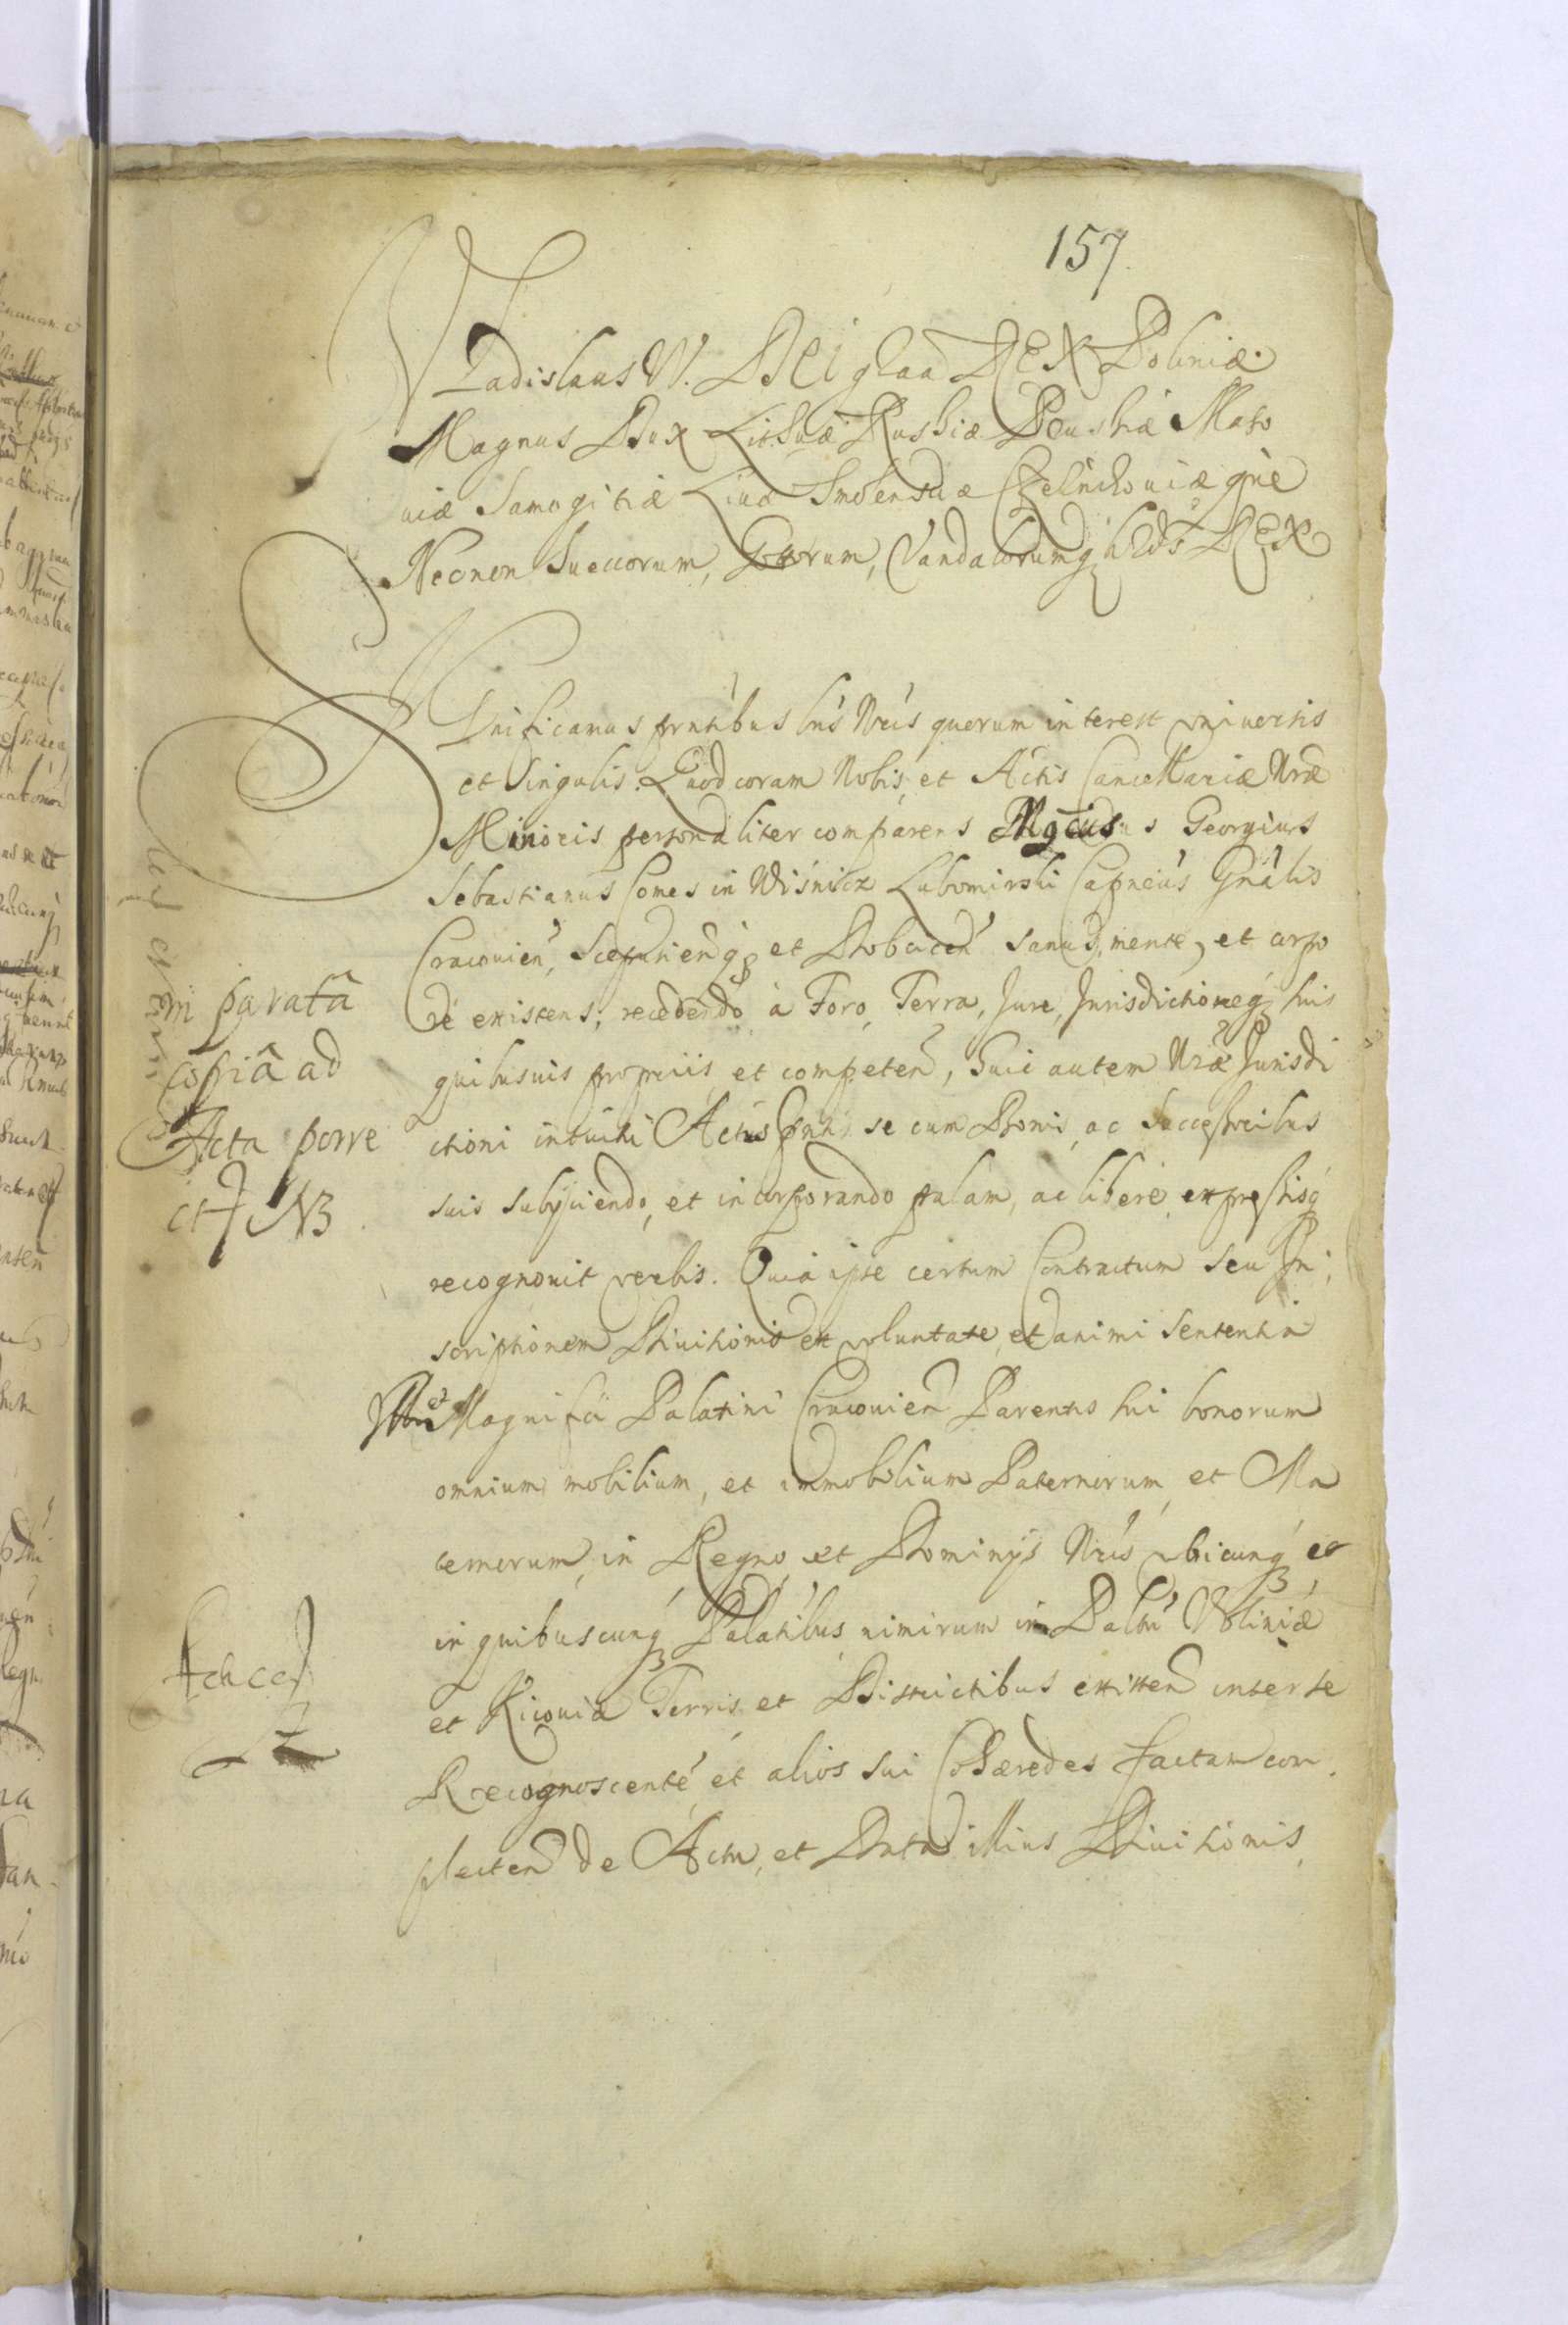 157.
Vladislaus IV. DEI graa REX Poloniæ
Magnus Dux Lithuæ Russiæ Prussiæ Maso
uiæ Samogitiæ Liuo Smolensciæ Czernichouiæ que
Necnon Suecorum, Gottorum, Vandalorumq hæds REX
Significamus prntibus lris Nris quorum interest vniuersis
et singulis. Quod coram Nobis, et Actis Cancellariæ Nræ
Minoris personaliter comparens Mgcus Georgius
Sebastianus Comes in Wisnicz Lubomirski Capneus Gnalis
Cracouien, Scepusienq et Dobcicen sanus mente, et corpo
re existens, recedendo à Foro, Terra, Jure, Jurisdictioneq suis
quibusuis proprijs et competen, huic autem Nræ Jurisdi
ctioni intuitu Actus pntis se cum Bonis, ac Successoribus
suis subijciendo, et incorporando palam, ac libere, expressisq
recognouit verbis. Quia ipse certum Contractum seu In,
scriptionem Diuisionis ex voluntate, et animi sententia
Magnifici Palatini Cracouien Parentis sui bonorum
omnium mobilium, et immobilium Paternorum et Ma
ternorum, in Regno, et Dominijs Nris vbicunq et
in quibuscunq Palatibus nimirum in Paltu Voliniæ
et Kiouiæ Terris et Districtibus existen inter se
Recognoscente, et alios sui Cohæredes factam con,
plecten de Actu, et Data illius Diuisionis,
m parata
copiâ ad
Acta porre
ct NB